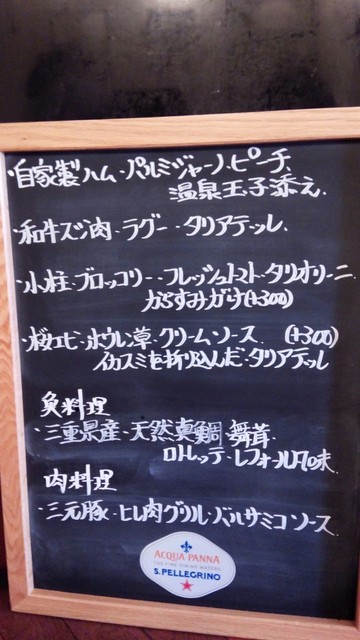 ・自家製ハム・パルミジャーノ・ピーチ
温泉玉子添え.
・和牛スジ肉・ラグー・タリアテッレ.
・小柱・ブロッコリー・フレッシュトマト・タリオリーニ
からすみがけ(+300)
・桜エビ・ホウレン草・クリームソース. (+300)
イカスミを折り込んだ・タリアテッレ
魚料理
・三重県産・天然真鯛・舞茸.
ロトレッテ・レフォール風味.
肉料理
・三元豚・ヒレ肉グリル・バルサミコソース.
ACQUA PANNA
THE FINE DINING WATERS
S.PELLEGRINO